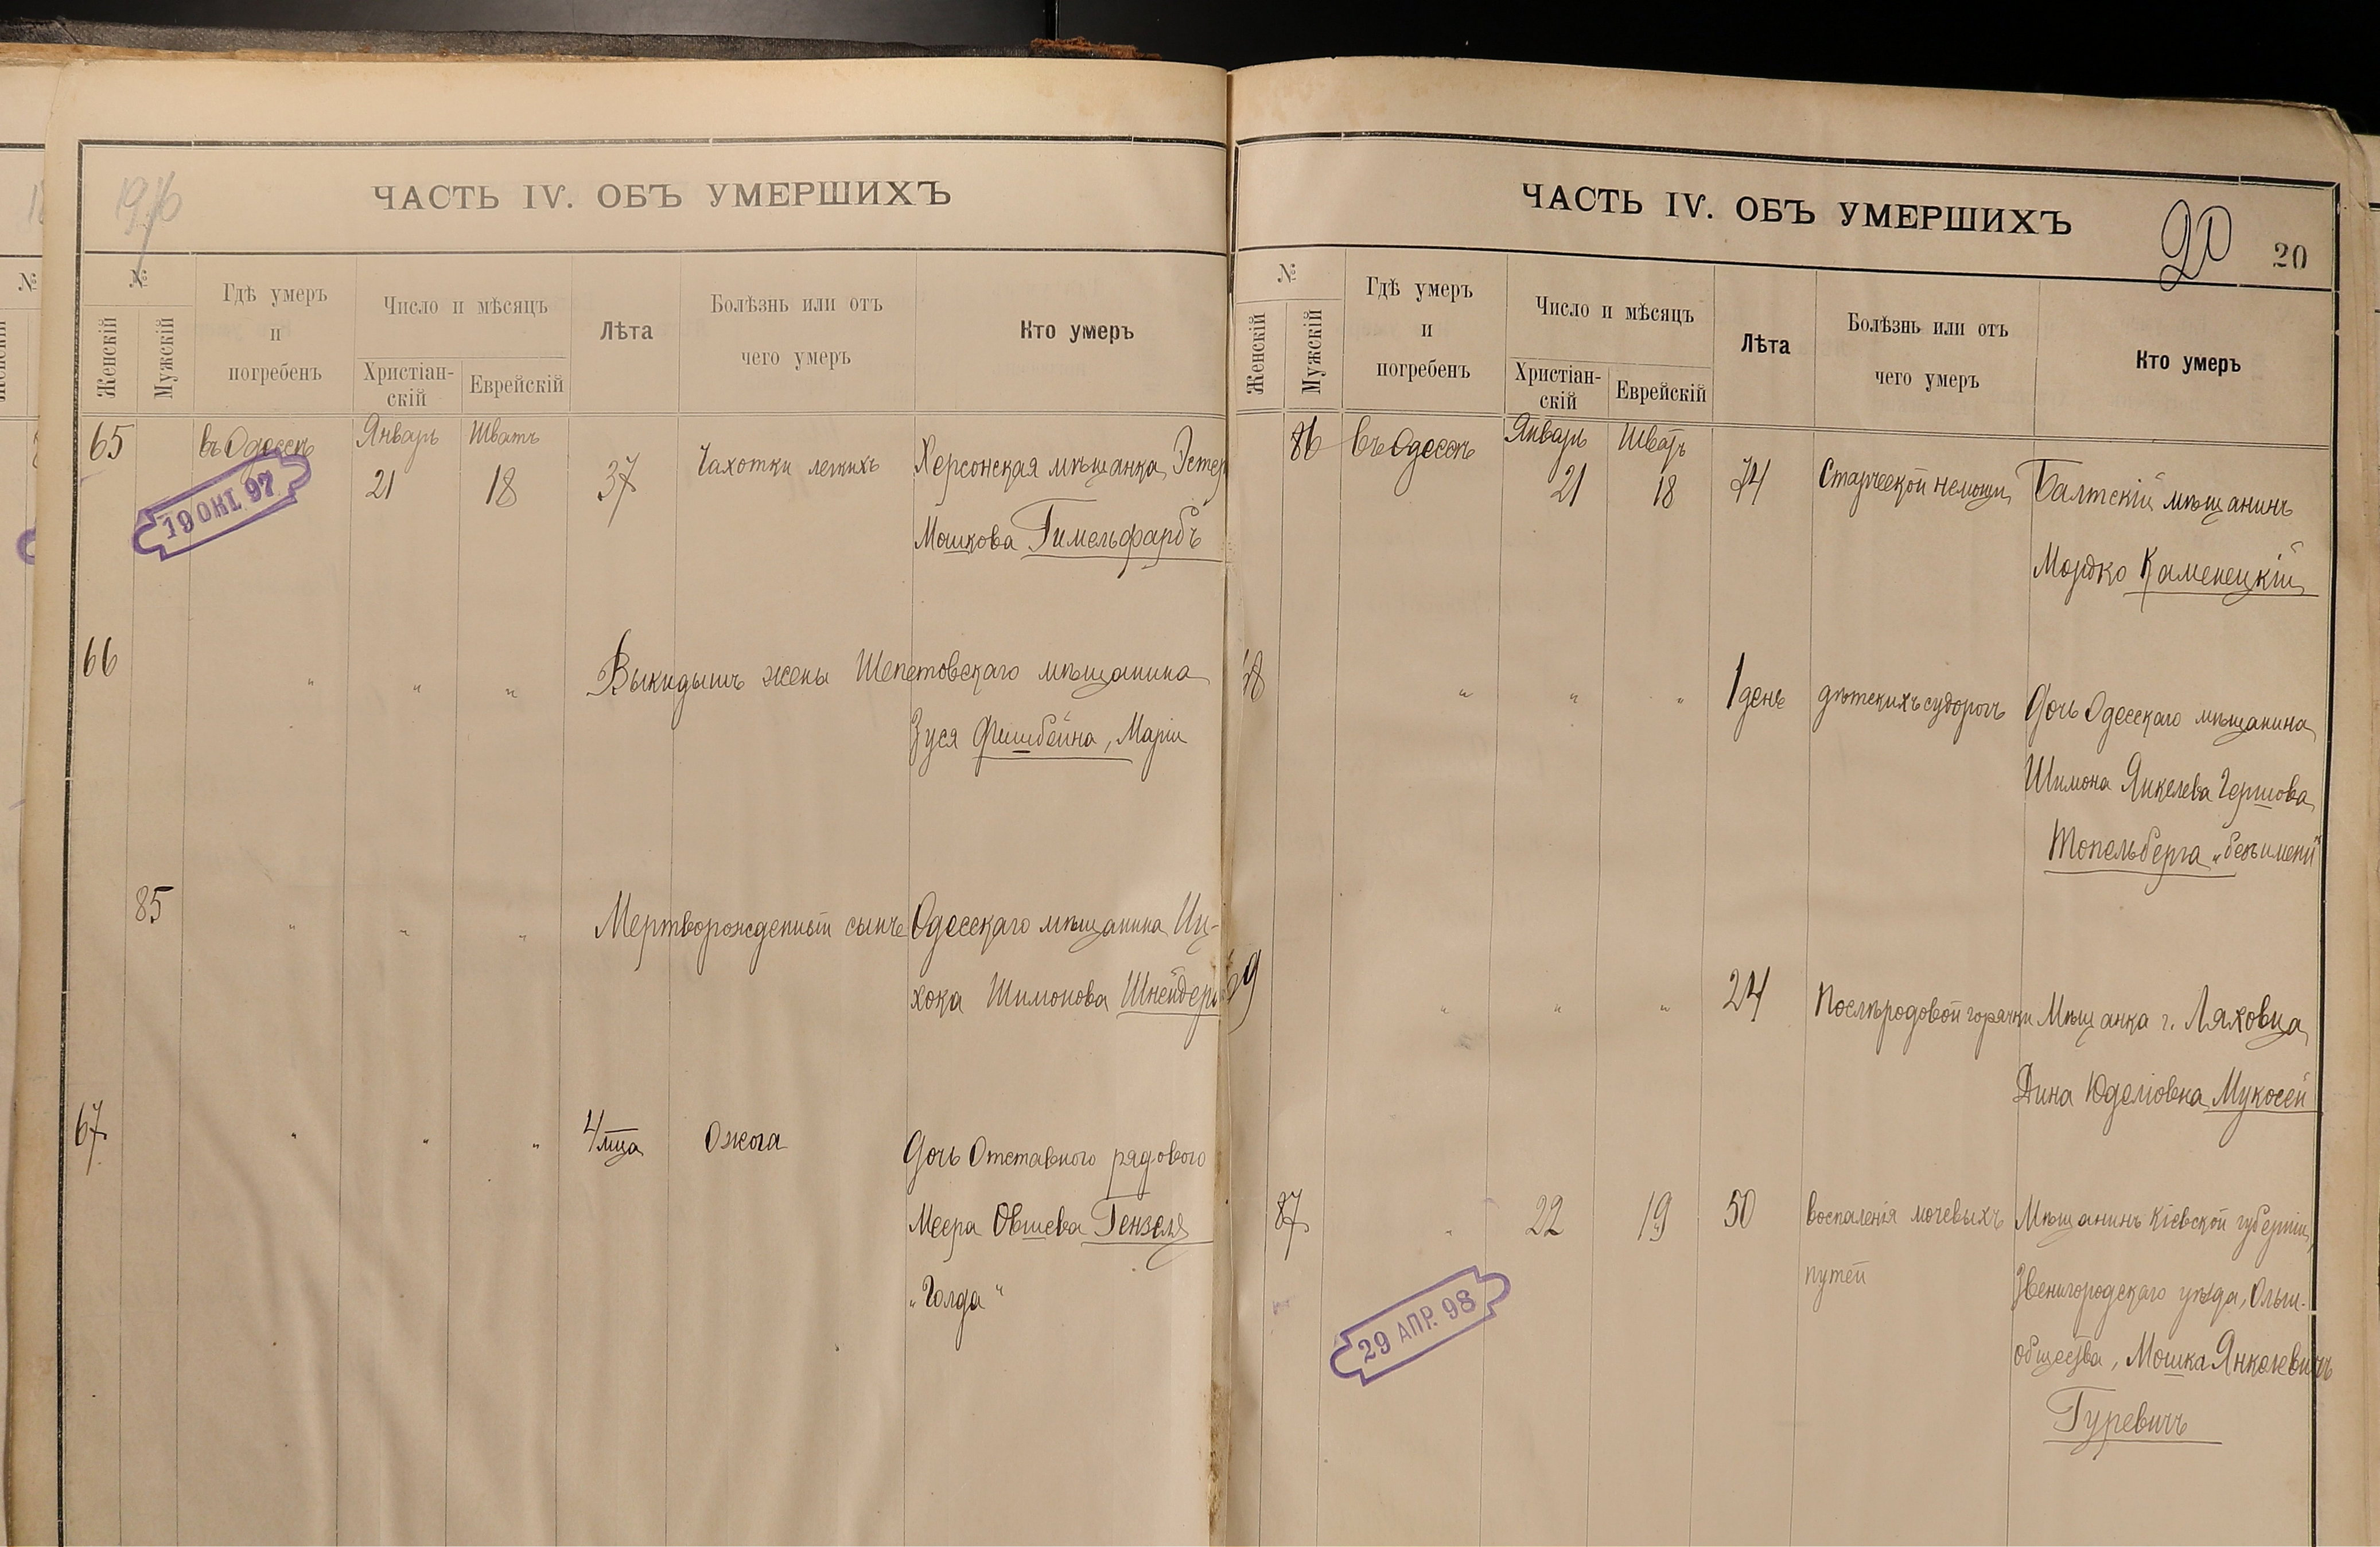 19об
ЧАСТЬ IV. ОБЪ УМЕРШИХЪ
№
Женскій
Мужскій
Гдѣ умеръ
и
погребенъ
Число и мѣсяцъ
Христіан-
скій
Еврейскій
Лѣта
Болѣзнь или отъ
чего умеръ
Кто умеръ
65 въ Одессѣ Январь Шватъ
21 18 37 Чахотки легкихъ Херсонская мѣщанка Эстер
Мошкова Гимельфарбъ
19 ОКТ. 97
66 " " " Выкидышъ жены Шепетовскаго мѣщанина
Зуся Фишбейна, Маріи
85 " " " Мертворожденный сынъ Одесскаго мѣщанина Иц-
хока Шимонова Шнейдер
67 " " " 4 м͞ца Ожога Дочь Отставного рядового
Меера Овшева Гензеля
"Голда"
ЧАСТЬ IV. ОБЪ УМЕРШИХЪ
20 20
№
Женскій
Мужскій
Гдѣ умеръ
и
погребенъ
Число и мѣсяцъ
Христіан-
скій
Еврейскій
Лѣта
Болѣзнь или отъ
чего умеръ
Кто умеръ
86 въ Одессѣ Январь Шватъ
21 18 74 Старческой немощи Балтскій мѣщанинъ
Мордко Каменецкій
8 " " " 1 день дѣтскихъ судорогъ Дочь Одесскаго мѣщанина
Шимона Янкелева Гершова
Топельберга "безъ имени"
9 " " " 24 Послѣродовой горячки Мѣщанка г. Ляховца
Дина Юделіовна Мукосей
87 " 22 19 50 воспаленія мочевыхъ Мѣщанинъ Кіевской губерніи,
путей Звенигородскаго уѣзда, Ольш.
общества, Мошка Янкелевичъ
Гуревичъ
29 АПР. 98